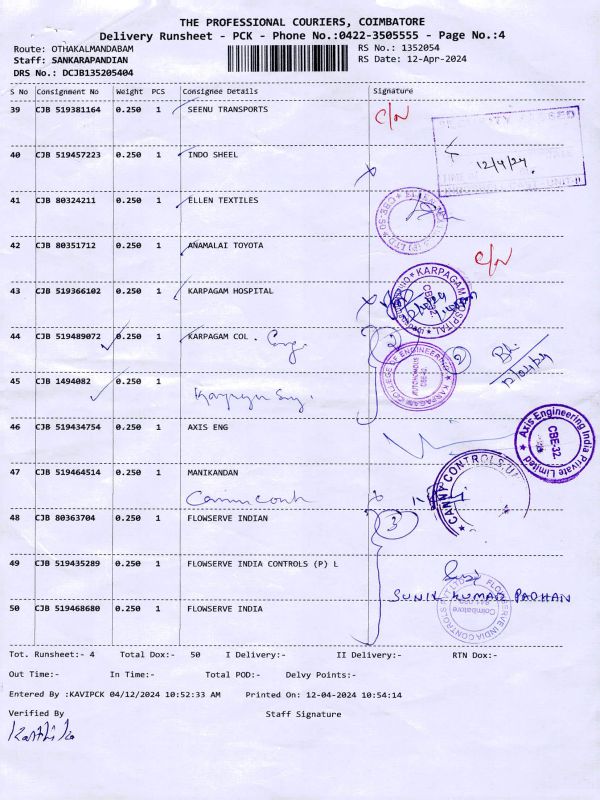 THE PROFESSIONAL COURIERS, COIMBATORE
Delivery Runsheet - PCK - Phone No.:0422-3505555 - Page No.:4
Route: OTHAKALMANDABAM RS No.: 1352054
Staff: SANKARAPANDIAN RS Date: 12-Apr-2024
DRS No.: DCJB135205404
S No Consignment No Weight PCS Consignee Details Signature
39 CJB 519381164 0.250 1 SEENU TRANSPORTS C/N
12/4/24.
40 CJB 519457223 0.250 1 INDO SHEEL
41 CJB 80324211 0.250 1 ELLEN TEXTILES
42 CJB 80351712 0.250 1 ANAMALAI TOYOTA C/N
43 CJB 519366102 0.250 1 KARPAGAM HOSPITAL
KARPAGAM HOSPITAL
44 CJB 519489072 0.250 1 KARPAGAM COL .
KARPAGAM COLLEGE OF ENGINEERING AUTONOMOUS CBE-32.
12/04/24
45 CJB 1494082 0.250 1
46 CJB 519434754 0.250 1 AXIS ENG
Axis Engineering India Private Limited CBE-32.
47 CJB 519464514 0.250 1 MANIKANDAN
CANNY CONTROLS
48 CJB 80363704 0.250 1 FLOWSERVE INDIAN 3
49 CJB 519435289 0.250 1 FLOWSERVE INDIA CONTROLS (P) L
SUNIL KUMAR PADHAN
50 CJB 519468680 0.250 1 FLOWSERVE INDIA
FLOWSERVE INDIA CONTROLS PVT LTD Coimbatore
Tot. Runsheet:- 4 Total Dox:- 50 I Delivery:- II Delivery:- RTN Dox:-
Out Time:- In Time:- Total POD:- Delvy Points:-
Entered By :KAVIPCK 04/12/2024 10:52:33 AM Printed On: 12-04-2024 10:54:14
Verified By Staff Signature